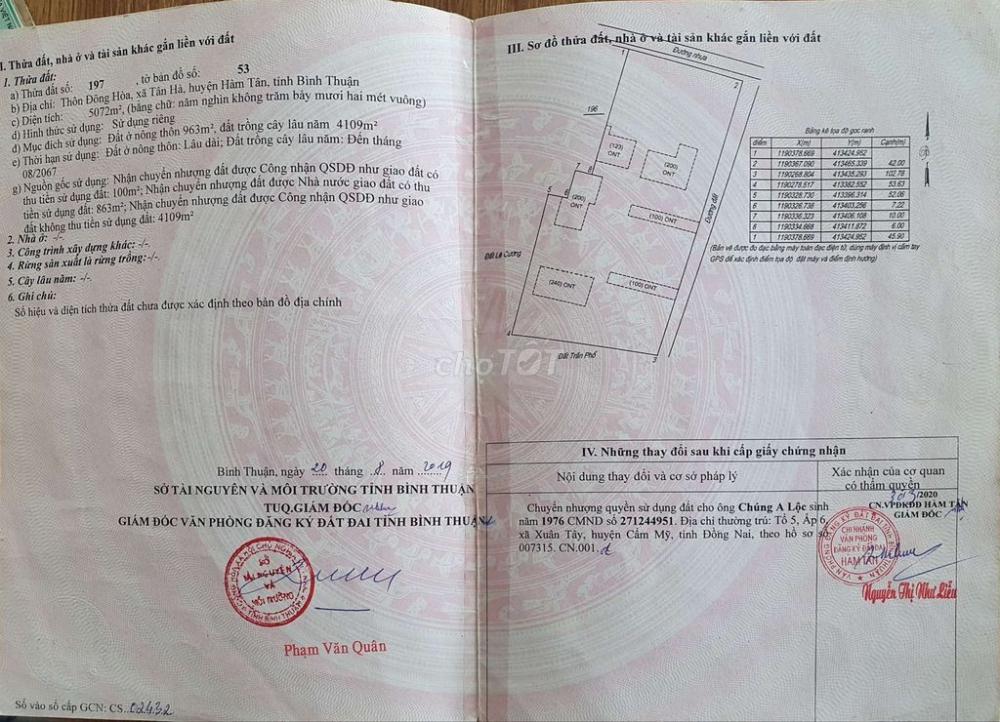 I. Thửa đất, nhà ở và tài sản khác gắn liền với đất
1. Thửa đất:
a) Thửa đất số: 197 , tờ bản đồ số: 53
b) Địa chỉ: Thôn Đông Hòa, xã Tân Hà, huyện Hàm Tân, tỉnh Bình Thuận
c) Diện tích: 5072m², (bằng chữ: năm nghìn không trăm bảy mươi hai mét vuông)
d) Hình thức sử dụng: Sử dụng riêng
đ) Mục đích sử dụng: Đất ở nông thôn 963m², đất trồng cây lâu năm 4109m²
e) Thời hạn sử dụng: Đất ở nông thôn: Lâu dài; Đất trồng cây lâu năm: Đến tháng
08/2067
g) Nguồn gốc sử dụng: Nhận chuyển nhượng đất được Công nhận QSDĐ như giao đất có
thu tiền sử dụng đất: 100m²; Nhận chuyển nhượng đất được Nhà nước giao đất có thu
tiền sử dụng đất: 863m²; Nhận chuyển nhượng đất được Công nhận QSDĐ như giao
đất không thu tiền sử dụng đất: 4109m²
2. Nhà ở: -/-
3. Công trình xây dựng khác: -/-
4. Rừng sản xuất là rừng trồng: -/-
5. Cây lâu năm: -/-
6. Ghi chú:
Số hiệu và diện tích thửa đất chưa được xác định theo bản đồ địa chính
Bình Thuận, ngày 20 tháng 8 năm 2019
SỞ TÀI NGUYÊN VÀ MÔI TRƯỜNG TỈNH BÌNH THUẬN
TUQ.GIÁM ĐỐC
GIÁM ĐỐC VĂN PHÒNG ĐĂNG KÝ ĐẤT ĐAI TỈNH BÌNH THUẬN
SỞ
TÀI NGUYÊN
VÀ
MÔI TRƯỜNG
TỈNH BÌNH THUẬN
Phạm Văn Quân
Số vào sổ cấp GCN: CS..02432
III. Sơ đồ thửa đất, nhà ở và tài sản khác gắn liền với đất
Đường nhựa
1
2
196
(123)
ONT
(200)
ONT
7
8
5
6
(200)
ONT
(100) ONT
Đường đất
Đất Lê Cương
(240) ONT
(100) ONT
4
Đất Trần Phố
3
Bảng kê tọa độ góc ranh
điểm X(m) Y(m) Cạnh(m)
1 1190378.669 413424.952
2 1190367.090 413465.339 42.00
3 1190268.804 413435.293 102.78
4 1190278.517 413382.552 53.63
5 1190328.730 413396.314 52.06
6 1190326.736 413403.256 7.22
7 1190336.323 413406.108 10.00
8 1190334.668 413411.872 6.00
1 1190378.669 413424.952 45.90
(Bản vẽ được đo đạc bằng máy toàn đạc điện tử, dùng máy định vị cầm tay
GPS để xác định điểm tọa độ đặt máy và điểm định hướng)
chợTỐT
IV. Những thay đổi sau khi cấp giấy chứng nhận
Nội dung thay đổi và cơ sở pháp lý
Xác nhận của cơ quan
có thẩm quyền
Chuyển nhượng quyền sử dụng đất cho ông Chúng A Lộc sinh
năm 1976 CMND số 271244951. Địa chỉ thường trú: Tổ 5, Ấp 6,
xã Xuân Tây, huyện Cẩm Mỹ, tỉnh Đồng Nai, theo hồ sơ số
007315. CN.001.
/2020
CN.VPĐKĐĐ HÀM TÂN
GIÁM ĐỐC
CHI NHÁNH
VĂN PHÒNG
ĐĂNG KÝ ĐẤT ĐAI
HÀM TÂN
Nguyễn Thị Như Liễu